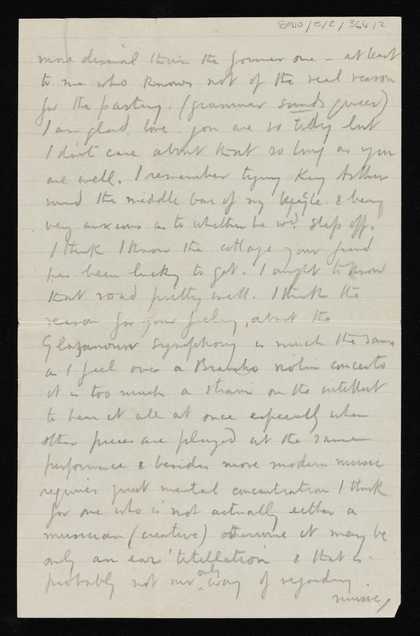 BNO/2/2/364/2
more dismal than the former one – at least
to me who knows not of the real reason
for the parting. (grammar sounds queer)
I am glad, love you are so tubby but
I don't care about that so long as you
are well. I remember tying King Arthur
round the middle bar of my bicycle & being
very anxious as to whether he wd. slip off.
I think I know the cottage your friend
has been lucky to get. I ought to know
that road pretty well. I think the
reason for your feeling, about the
Glazounow Symphony is much the same
as I feel over a Brahms violin concerto
it is too much a strain on the intellect
to hear it all at once especially when
other pieces are played at the same
performance & besides more modern music
requires great mental concentration I think
for one who is not actually either a
musician (creative) otherwise it may be
only an ear 'titillation & that is
probably not our only way of regarding
music,